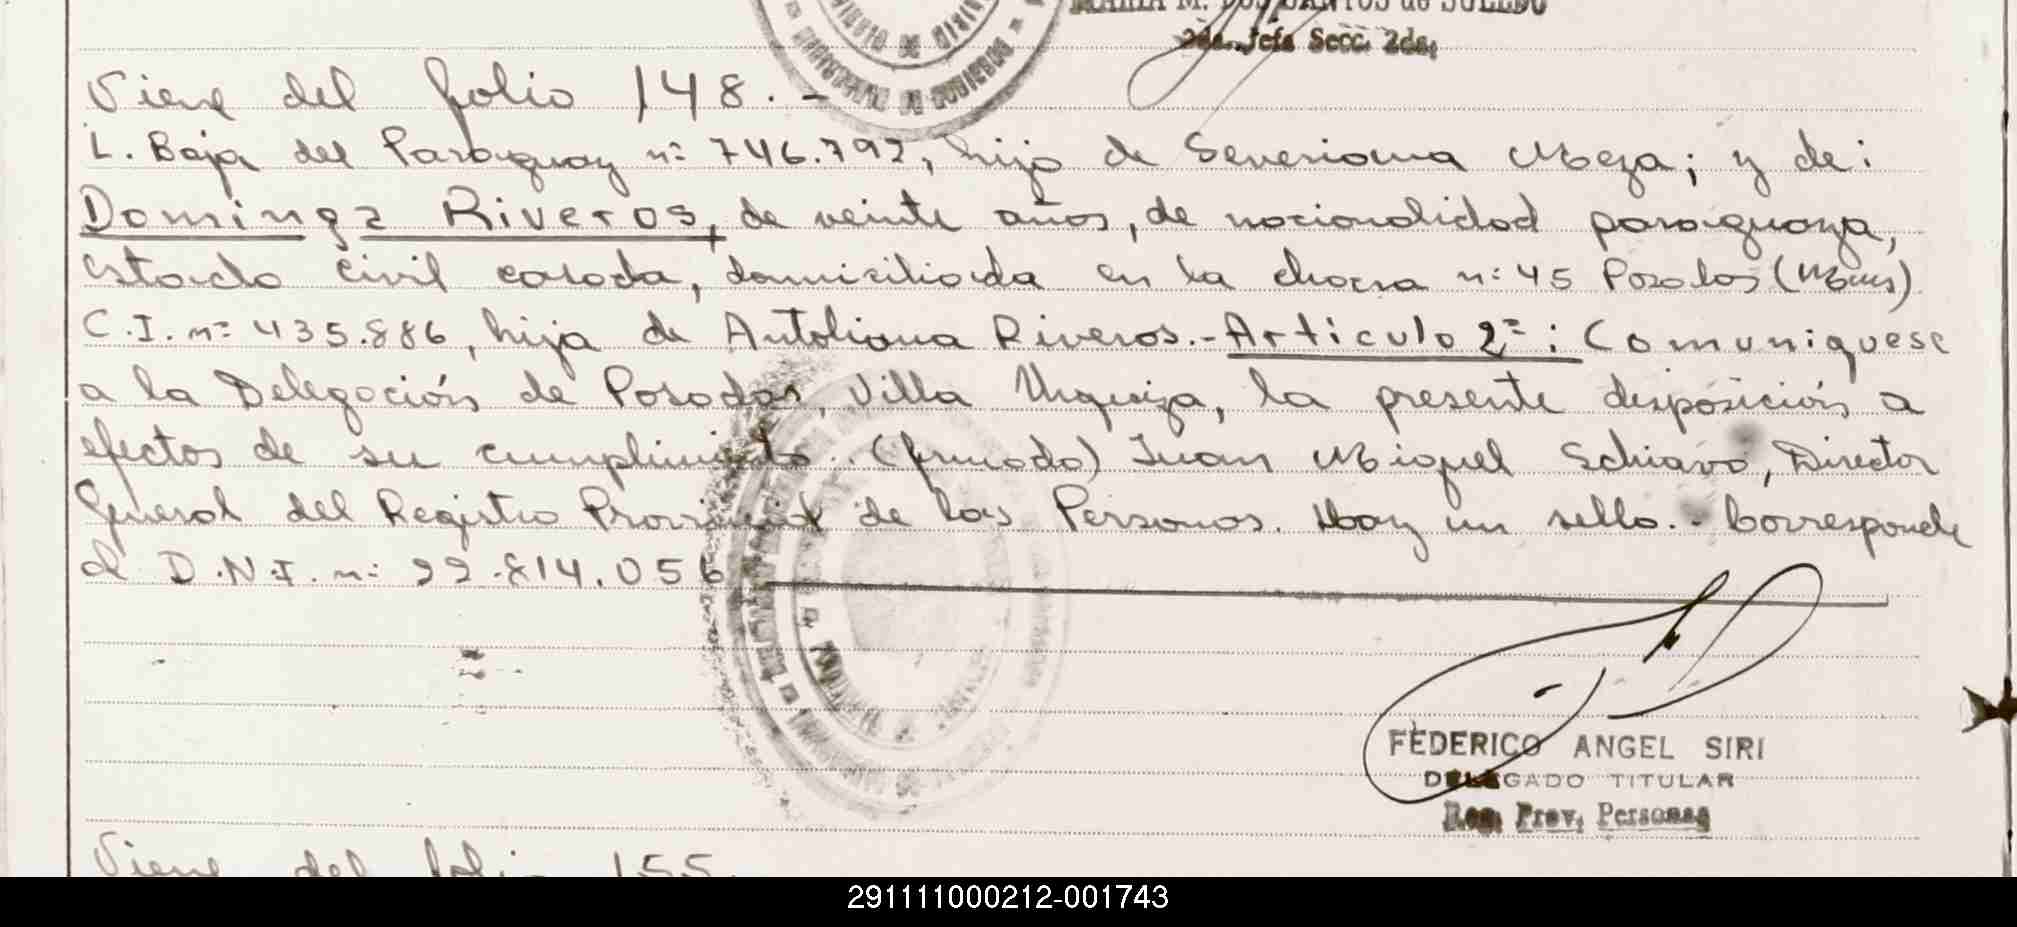 MARIA M. DOS SANTOS de SOLEDO
2da. Jefa Secc. 2da.
Viene del folio 148.-
L. Baja del Paraguay n: 746.792, hijo de Severiana Meza; y de:
Dominga Riveros, de veinte años, de nacionalidad paraguaya,
estado civil casada, domiciliada en la chacra n: 45 Posadas (Mnes)
C.I. n: 435.886, hija de Antoliana Riveros.- Artículo 2º: Comuniquese
a la Delegación de Posadas, Villa Urquiza, la presente disposición a
efectos de su cumplimiento. (firmado) Juan Miguel Schiavo, Director
General del Registro Provincial de las Personas. Hay un sello.- Corresponde
al D.N.I. n: 22.814.056
FEDERICO ANGEL SIRI
DELEGADO TITULAR
Reg. Prov. Personas
Viene del folio 155.
291111000212-001743